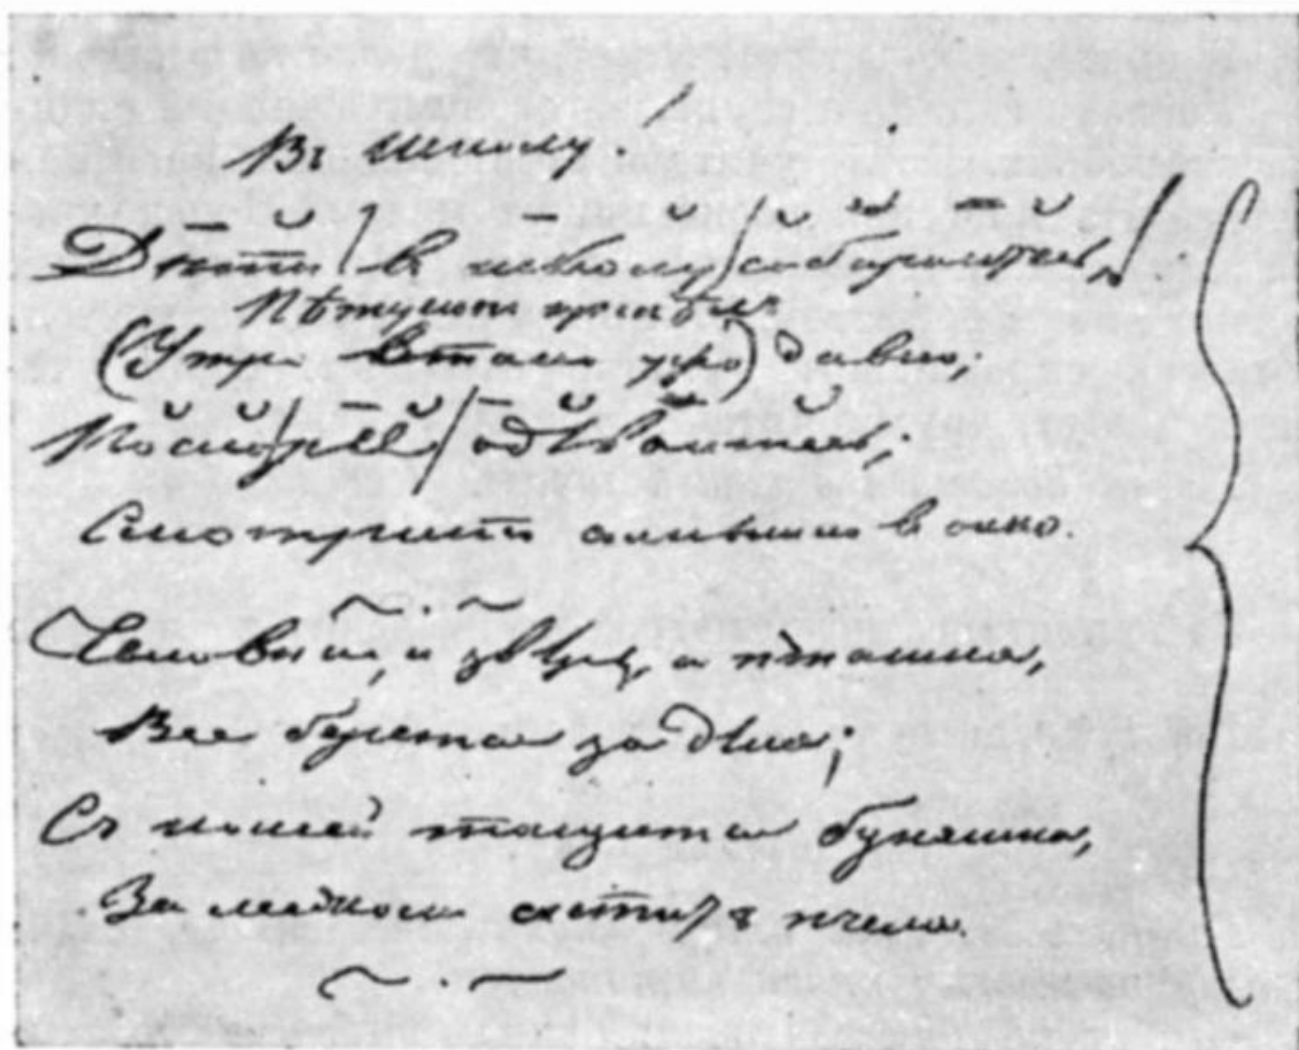 Въ школу!
Дѣти в школу собирайтесь,
Пѣтушокъ пропѣлъ
(Утро встало утро) давно;
Поскорѣй одѣвайтесь;
Смотритъ солнышко в окно.
Человѣкъ, и звѣрь, и пташка,
Все берется за дѣла;
Съ ношей тащится букашка,
За медкомъ летитъ пчела.